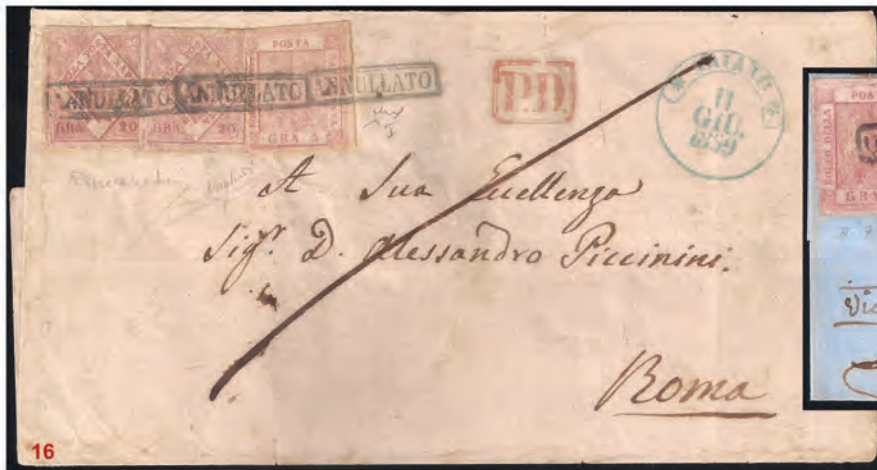 ANNULLATO ANNULLATO ANNULLATO
POSTA
GRA 20
GRA 20
GRA 5
P.D.
11
GIU.
1859
A Sua Eccellenza
Sigr. D. Alessandro Piccinini.
Roma
16
POS
GRA
Vic